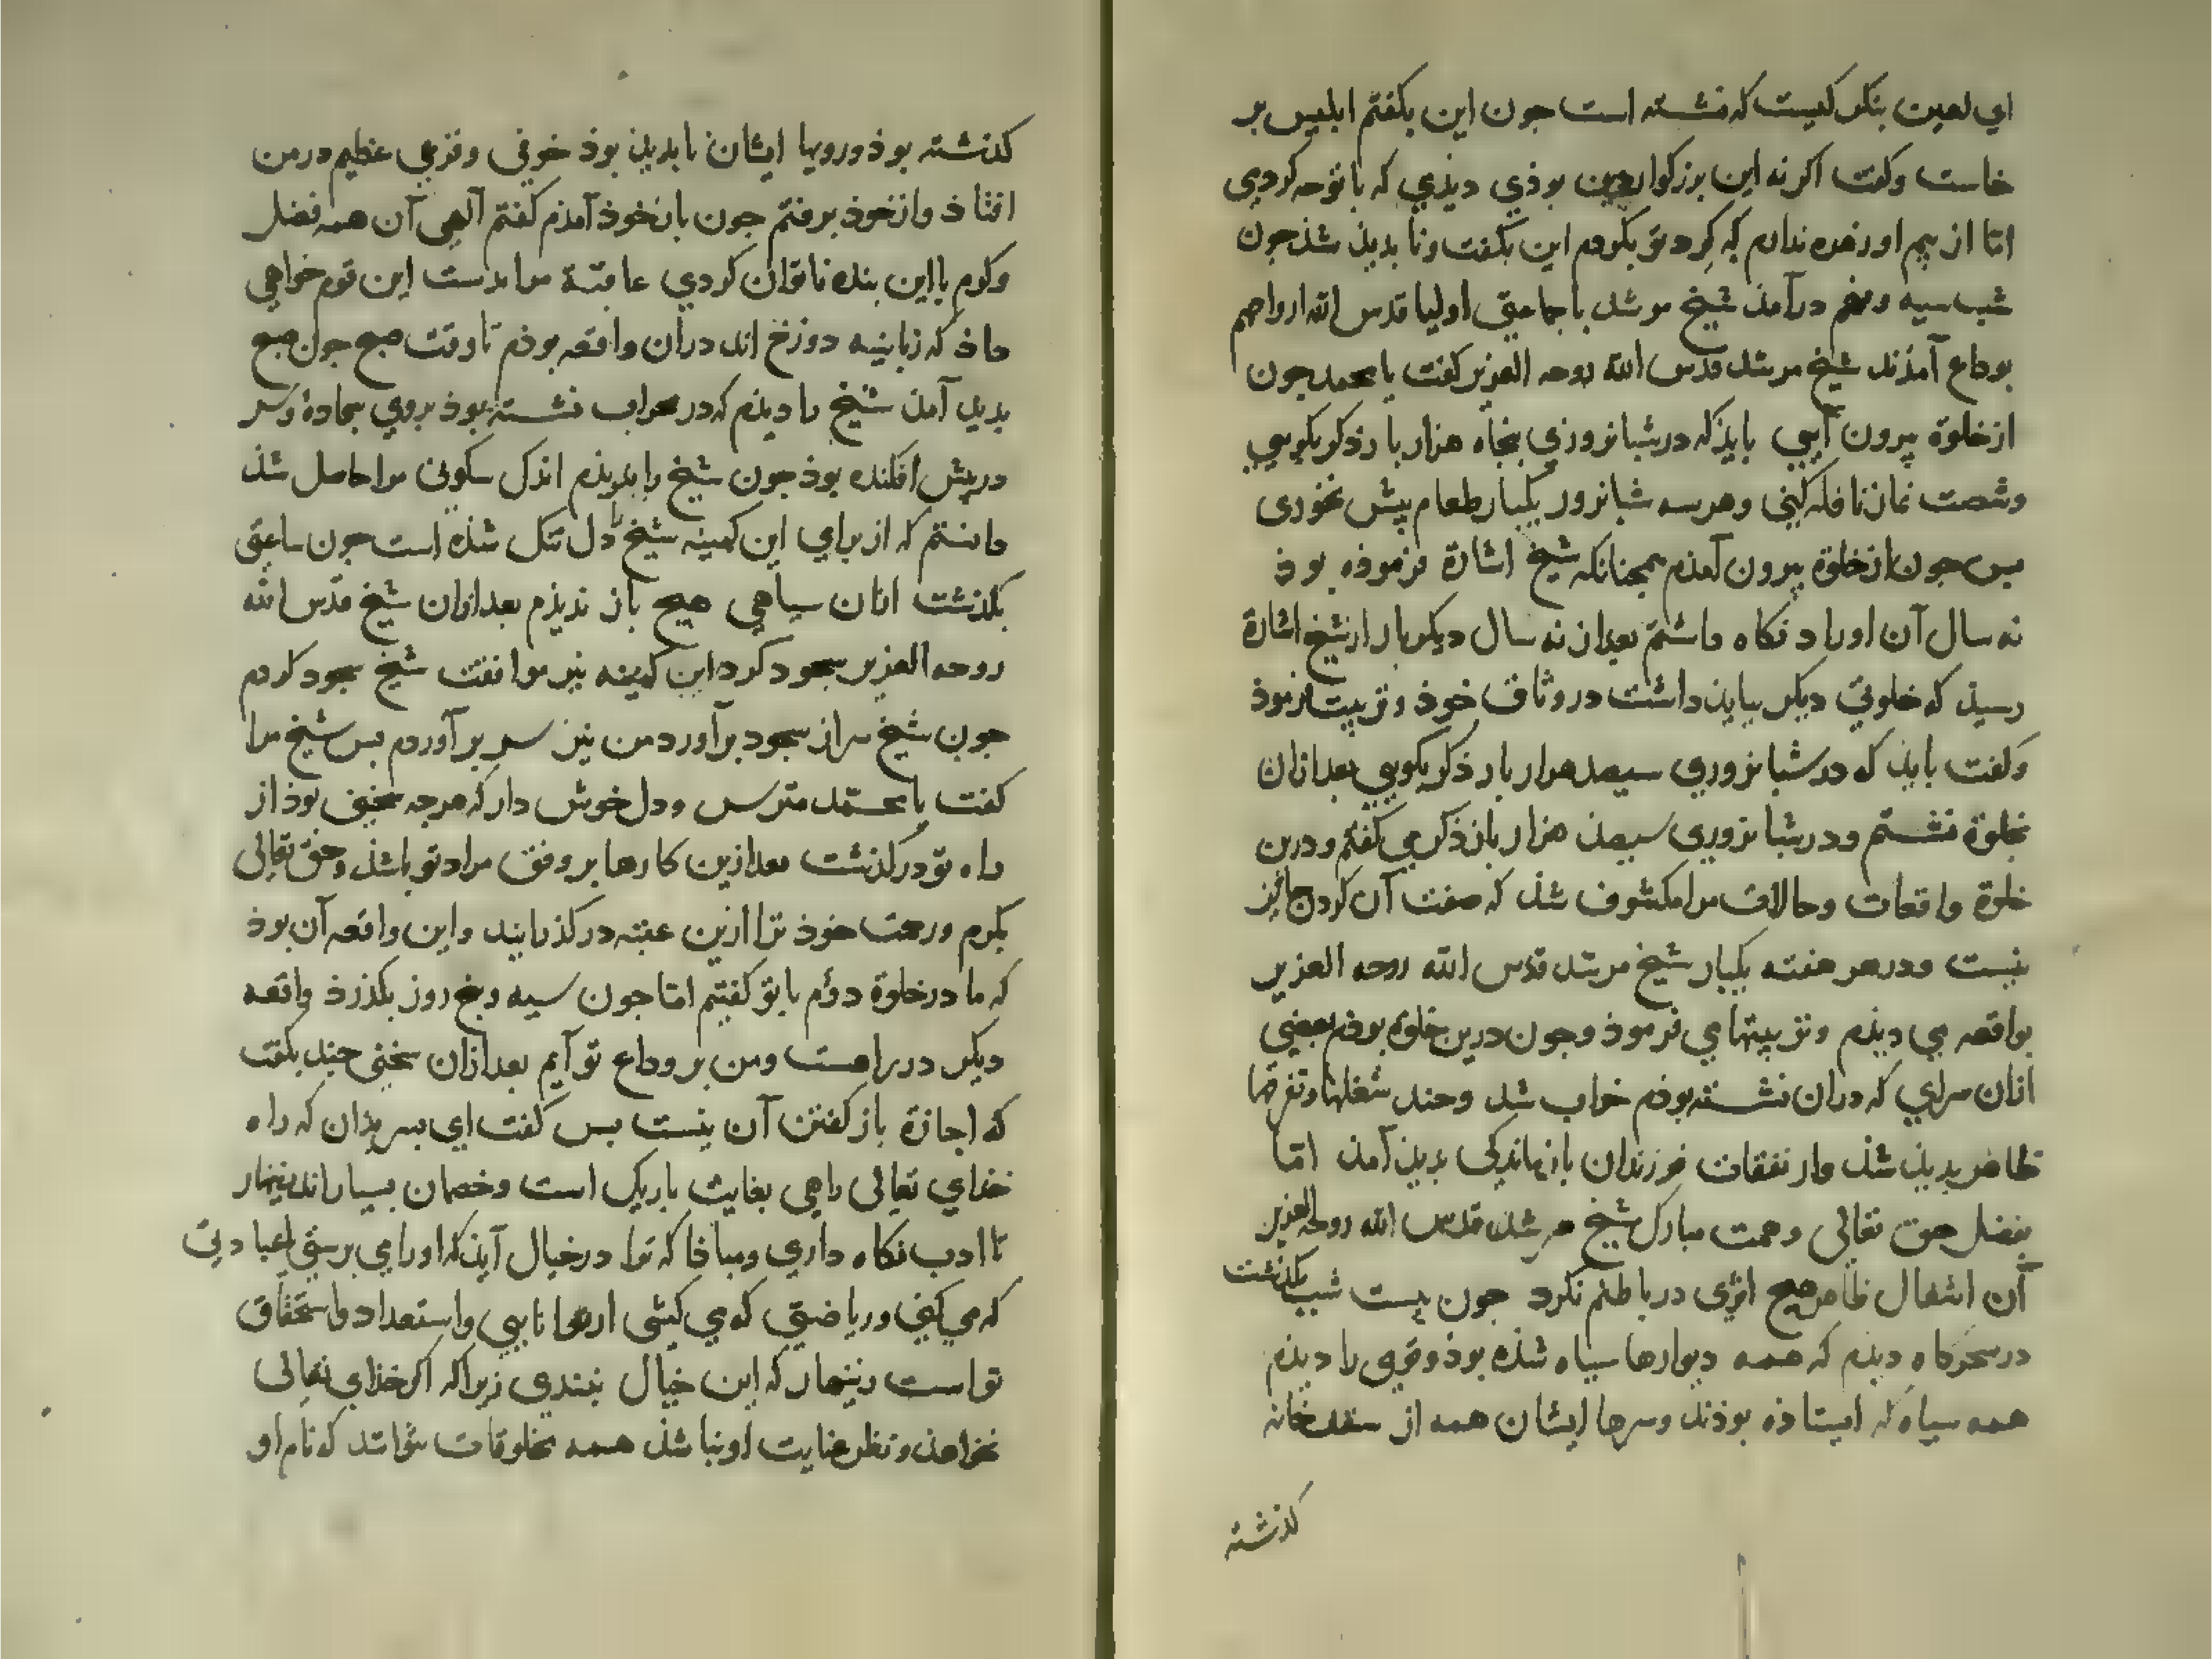 ای لعین بنکر کیست که نشسته است جون این بکفتم ابلیس بر
خاست وکفت اکر نه این بزرکوار بوذی دیذی که باتو جه کردمی
امّا از بیم او زهره ندارم که کرد تو بکردم این بکفت ونا بدیذ شذ جون
شب سیه و بنجم درآمذ شیخ مرشد باجماعتی اولیا قدس الله ارواحهم
بوداع آمذند شیخ مرشد قدس الله روحه العزیز کفت یا محمد جون
ازخلوة بیرون آیی بایذ که در شبانروزی بنجاه هزار بار ذکر بکویی
وشصت نماز نافله کنی وهر سه شبانروز یکبار طعام بیش نخوری
بس جون ازخلوة بیرون آمذم همجنانکه شیخ اشارة فرموذه بوذ
نه سال آن اوراد نکاه داشتم بعد از نه سال دیکر بار از شیخ اشارة
رسیذ که خلوتی دیکر ببایذ داشت در وثاق خوذ وتربیت فرموذ
وکفت بایذ که در شبانروزی سیصد هزار بار ذکر بکویی بعد ازان
بخلوة نشستم ودر شبانروزی سیصذ هزار بار ذکر می کفتم ودرین
خلوة واقعات وحالات مرا مکشوف شذ که صفت آن کردن جائز
نیست ودر هر هفته یکبار شیخ مرشد قدس الله روحه العزیز
بواقعه می دیذم وتربیتها می فرموذ وجون درین خلوة بوذم بعضی
ازان سرای که دران نشسته بوذم خراب شذ وجند شغلها وتفرقها
ظاهر بدیذ شذ واز نفقات فرزندان بازماندکی بدیذ آمذ امّا
بفضل حق تعالی وهمت مبارک شیخ مرشد قدس الله روحه العزیز
آن اشغال ظاهر هیج اثری در باطنم نکرد جون بیست شب بکذشت
در سحرکاه دیذم که همه دیوارها سیاه شذه بوذ وقومی را دیذم
همه سیاه که ایستاذه بوذند وسرها ایشان همه از سقف خانه
کذشته
کذشته بوذ ورویها ایشان نابدیذ بوذ خوفی وفزعی عظیم در من
افتاذ وازخوذ برفتم جون بازخوذ آمذم کفتم آلهی آن همه فضل
وکرم بااین بنده ناتوان کردی عاقبة مرا بدست این قوم خواهی
داذ که زبانیه دوزخ اند دران واقعه بوذم تا وقت صبح جون صبح
بدیذ آمذ شیخ را دیذم که در محراب نشسته بوذ بروی سجاده وسر
دربیش افکنده بوذ جون شیخ را بدیذم اندک سکونی مرا حاصل شذ
دانستم که از برای این کمینه شیخ را دل تنک شذه است جون ساعتی
بکذشت ازان سیاهی هیج باز ندیذم بعد ازان شیخ قدس الله
روحه العزیز سجود کرد این کمینه نیز موافقت شیخ سجود کردم
جون شیخ سر از سجود برآورد من نیز سر برآوردم بس شیخ مرا
کفت یا محمّد مترس ودل خوش دار که هرجه مخوف بوذ از
راه تو درکذشت بعد ازین کارها بر وفق مراد تو باشذ وحق تعالی
بکرم ورحمت خوذ ترا ازین عقبه درکذرانید واین واقعه آن بوذ
که ما در خلوة دوّم باتو کفتیم امّا جون سیه وبنج روز بکذرذ واقعه
دیکر در راهست ومن بر وداع تو آیم بعد ازان سخنی جند بکفت
که اجازة باز کفتن آن نیست بس کفت ای بسر بدان که راه
خذای تعالی راهی بغایت باریک است وخصمان بسیارند زینهار
تا ادب نکاه داری ومباذا که ترا در خیال آیذ که او را می برستی یا عبادتی
که می کنی وریاضتی که می کشی از ما نایبی واستعداد واستحقاق
تواست زینهار که این خیال نبندی زیراکه اکر خذای تعالی
نخواهذ ونظر عنایت او نباشذ همه مخلوقات نتوانند که نام او